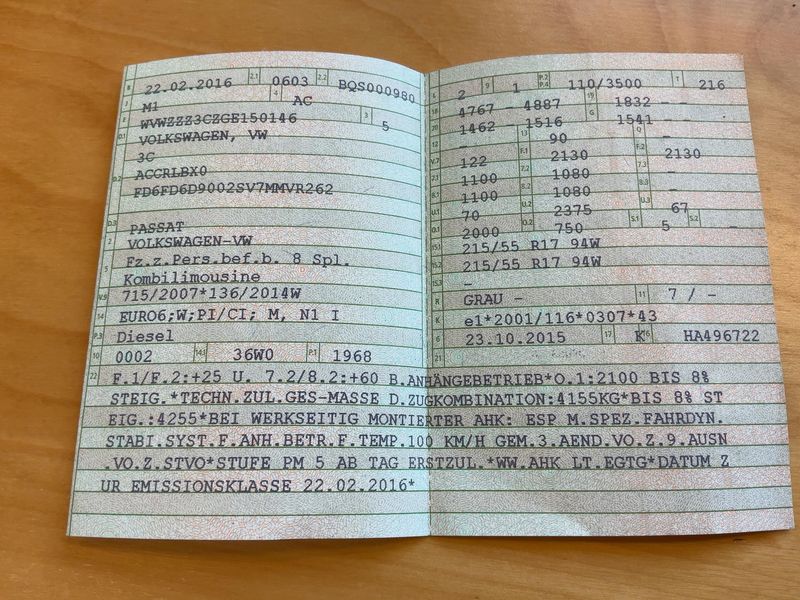 B 22.02.2016 2.1 0603 2.2 BQS000980
J M1 4 AC
E WVWZZZ3CZGE150146 3 5
D.1 VOLKSWAGEN, VW
3C
D.2 ACCRLBX0
FD6FD6D9002SV7MMVR262
D.3 PASSAT
2 VOLKSWAGEN-VW
5 Fz.z.Pers.bef.b. 8 Spl.
Kombilimousine
V.9 715/2007*136/2014W
14 EURO6;W;PI/CI; M, N1 I
P.3 Diesel
10 0002 14.1 36W0 P.1 1968
L 2 9 1 P.2 P.4 110/3500 T 216
18 4767 - 4887 19 1832 - -
20 1462 - 1516 G 1541 -
12 - 13 90 Q -
V.7 122 F.1 2130 F.2 2130
7.1 1100 7.2 1080 7.3 -
8.1 1100 8.2 1080 8.3 -
U.1 70 U.2 2375 U.3 67
O.1 2000 O.2 750 S.1 5 S.2 -
15.1 215/55 R17 94W
15.2 215/55 R17 94W
15.3 -
R GRAU - 11 7 / -
K e1*2001/116*0307*43
6 23.10.2015 17 K 16 HA496722
21
22 F.1/F.2:+25 U. 7.2/8.2:+60 B.ANHÄNGEBETRIEB*O.1:2100 BIS 8%
STEIG.*TECHN.ZUL.GES-MASSE D.ZUGKOMBINATION:4155KG*BIS 8% ST
EIG.:4255*BEI WERKSEITIG MONTIERTER AHK: ESP M.SPEZ.FAHRDYN.
STABI.SYST.F.ANH.BETR.F.TEMP.100 KM/H GEM.3.AEND.VO.Z.9.AUSN
.VO.Z.STVO*STUFE PM 5 AB TAG ERSTZUL.*WW.AHK LT.EGTG*DATUM Z
UR EMISSIONSKLASSE 22.02.2016*